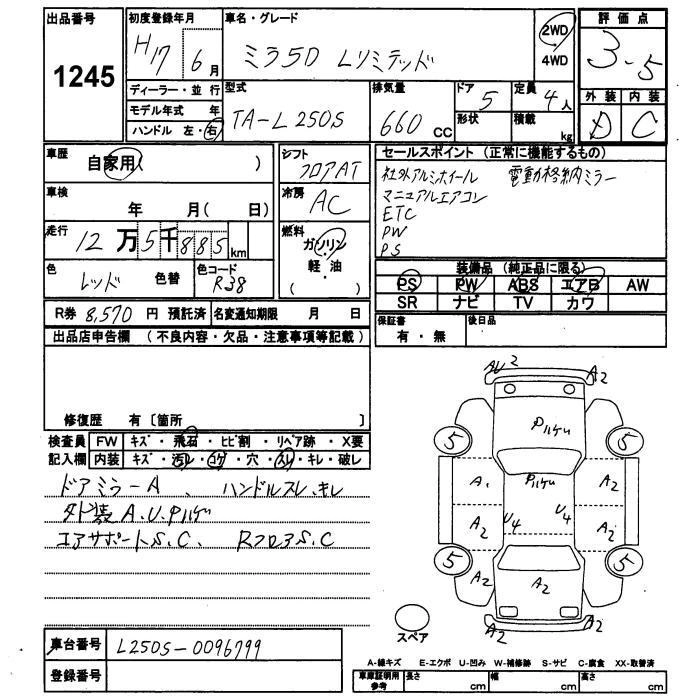 出品番号
1245
初度登録年月
H17 6月
ディーラー・並 行
モデル年式 年
ハンドル 左・右
車名・グレード
ミラ5D Lリミテッド
2WD
4WD
型式
TA-L250S
排気量
660 CC
ドア 5
形状
定員 4人
積載 kg
評価点
3.5
外装 内装
D C
車歴
自家用( )
車検
年 月( 日)
走行
12万5千885km
色
レッド 色替
色コード
R38
シフト
フロアAT
冷房
AC
燃料
ガソリン
軽・油
( )
R券 8,570 円 預託済
名変通知期限 月 日
セールスポイント (正常に機能するもの)
社外アルミホイール 電動格納ミラー
マニュアルエアコン
ETC
PW
PS
装備品 (純正品に限る)
PS PW ABS エアB AW
SR ナビ TV カワ
保証書
有・無
後日品
出品店申告欄 (不良内容・欠品・注意事項等記載)
修復歴 有〔箇所 〕
検査員 FW キズ・飛石・ヒビ割・リペア跡・X要
記入欄 内装 キズ・汚レ・コゲ・穴・スレ・キレ・破レ
ドアミラーA、ハンドルスレ、キレ
外装A.U.Pハゲ有
エアサポートS.C、RフロアS.C
A2
Pハゲ有
5 5
A1 Pハゲ有 A2
A2 U4 U4 A2
5 5
A2 A2 A2
A2 A2
スペア
車台番号 L250S-0096799
登録番号
A-線キズ E-エクボ U-凹み W-補修跡 S-サビ C-腐食 XX-取替済
車庫証明用
参考
長さ cm 幅 cm 高さ cm